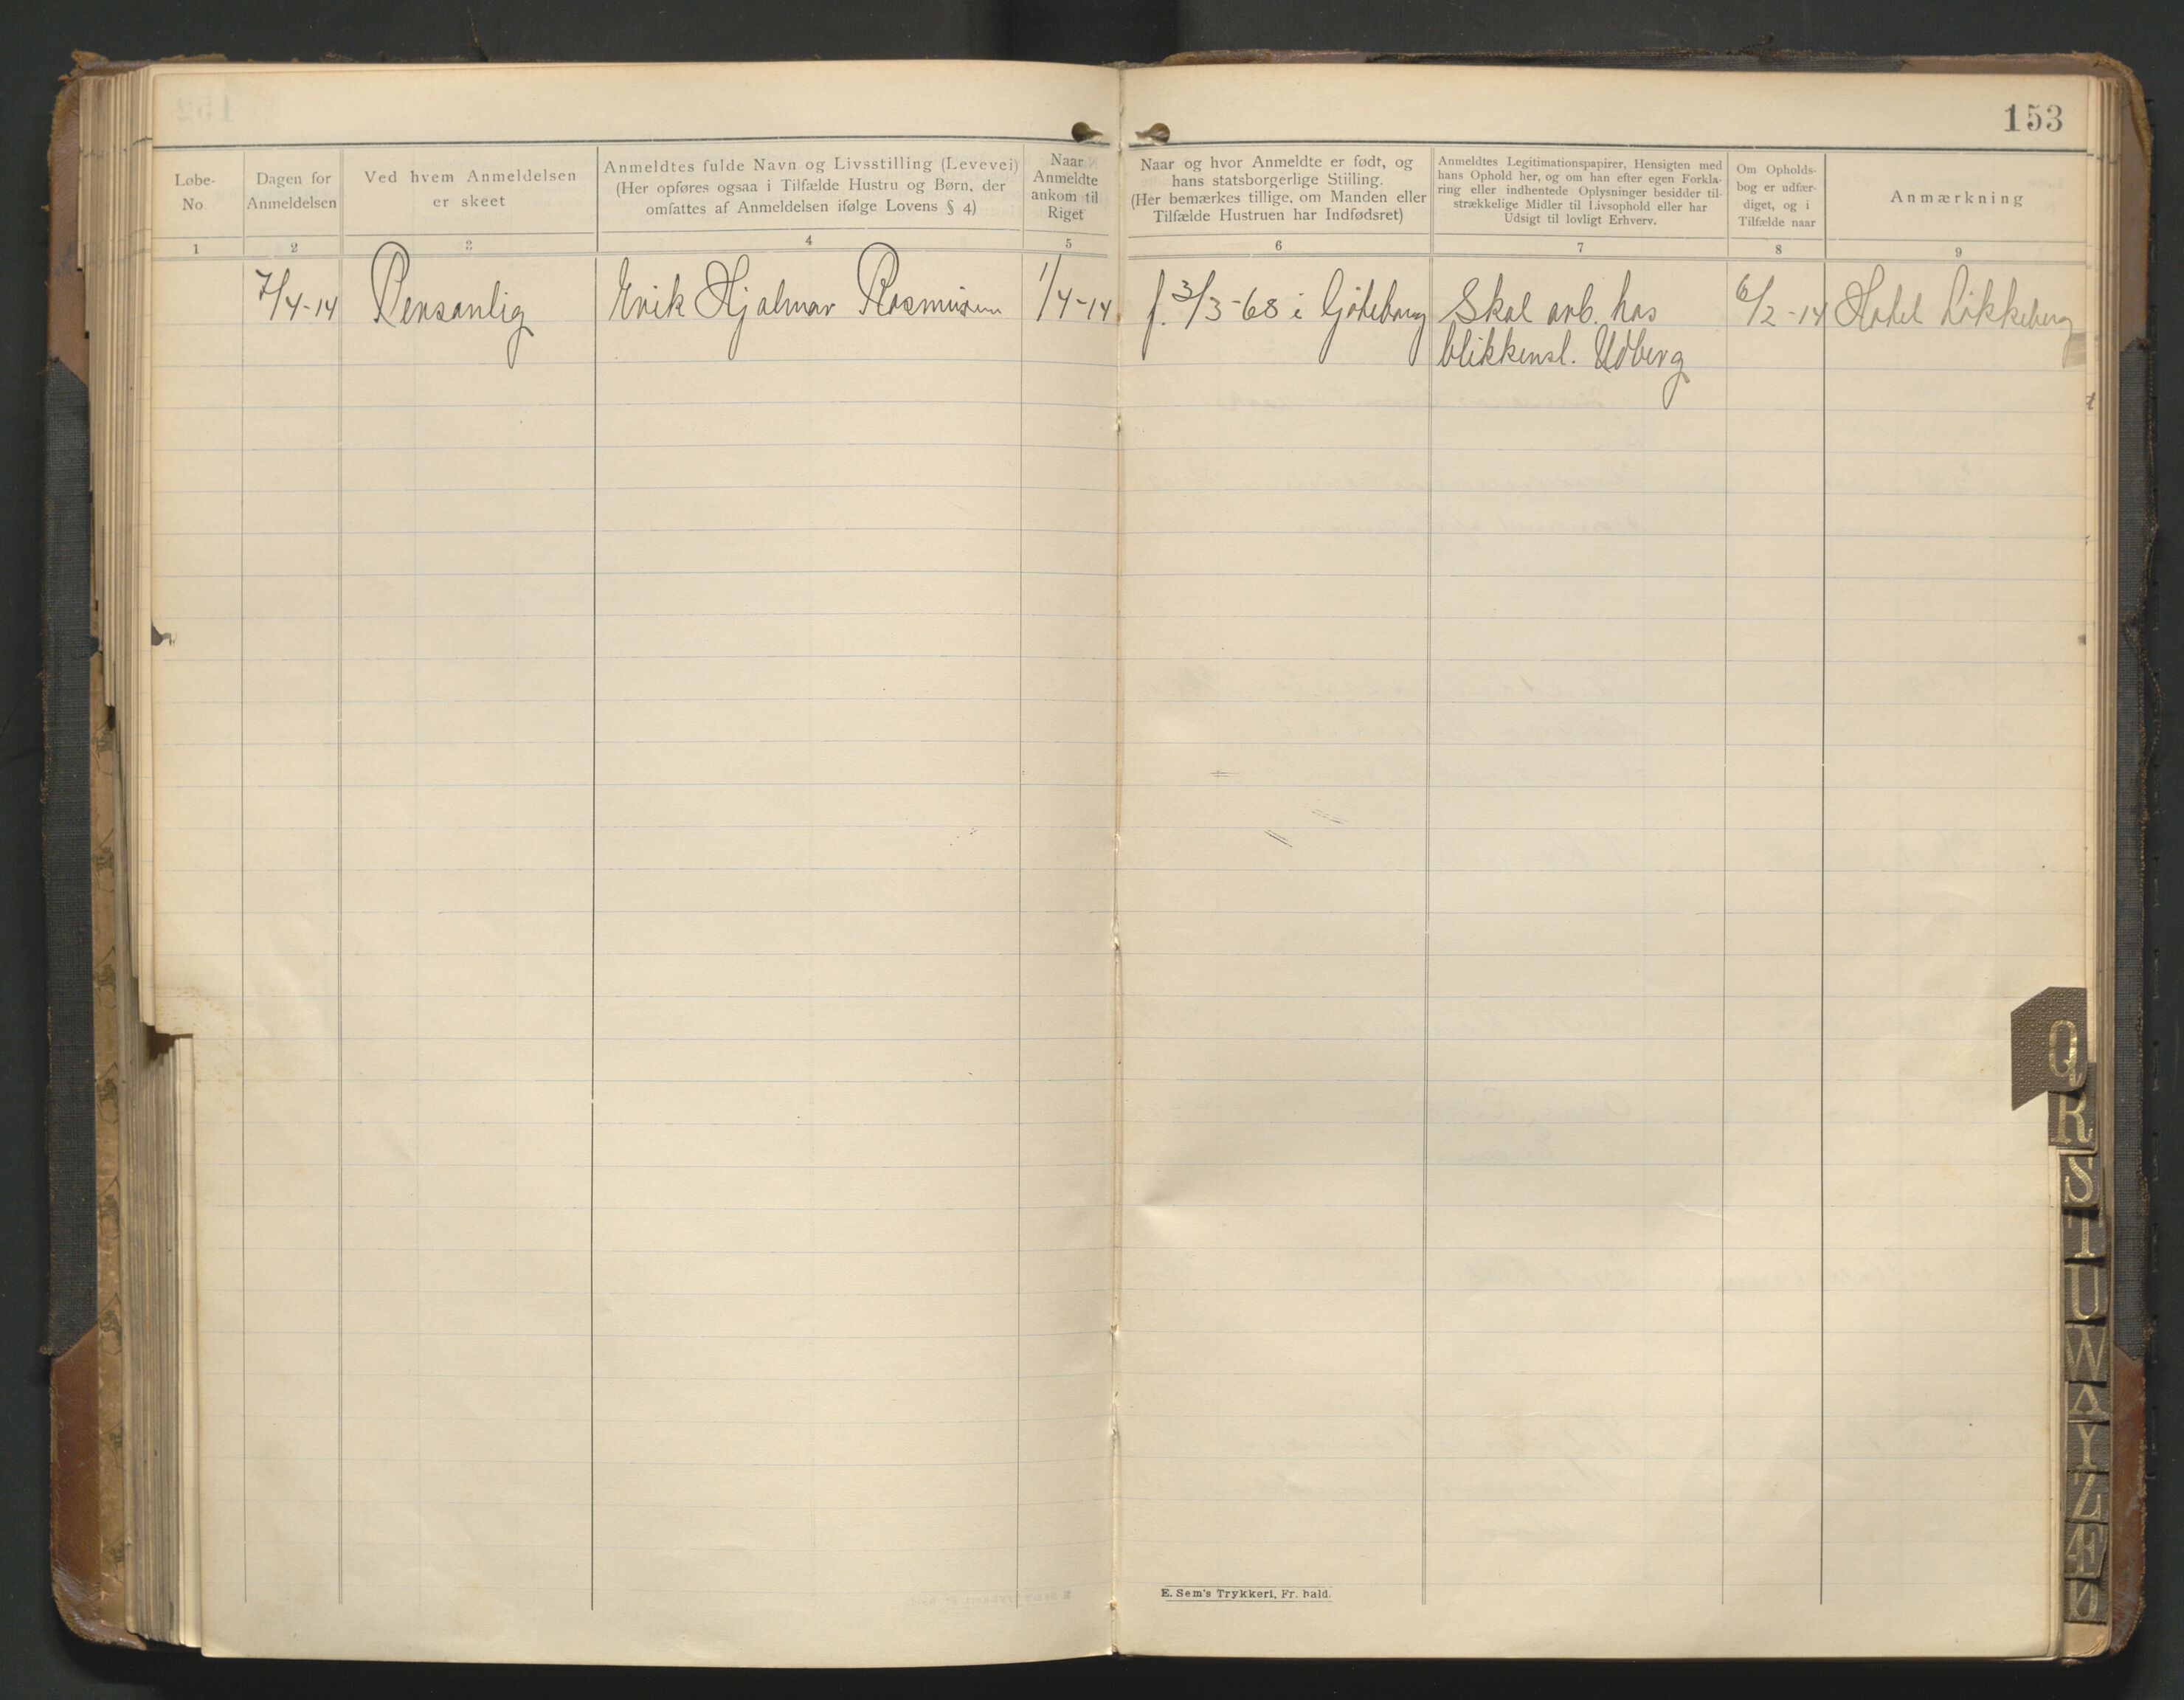 153
Løbe-
No.
Dagen for
Anmeldelsen
Ved hvem Anmeldelsen
er skeet
Anmeldtes fulde Navn og Livsstilling (Levevei)
(Her opføres ogsaa i Tilfælde Hustru og Børn, der
omfattes af Anmeldelsen ifølge Lovens § 4)
Naar
Anmeldte
ankom til
Riget
Naar og hvor Anmeldte er født, og
hans statsborgerlige Stilling.
(Her bemærkes tillige, om Manden eller
Tilfælde Hustruen har Indfødsret)
Anmeldtes Legitimationspapirer, Hensigten med
hans Ophold her, og om han efter egen Forkla-
ring eller indhentede Oplysninger besidder til-
strækkelige Midler til Livsophold eller har
Udsigt til lovligt Erhverv.
Om Opholds-
bog er udfær-
diget, og i
Tilfælde naar
Anmærkning
1 2 3 4 5 6 7 8 9
7/4-14 Personlig Erik Hjalmar Rasmussen 1/4-14 f. 3/3-68 i Göteborg Skal arb. hos 6/2-14 Hotel Løkkeberg
blikkensl. Udberg
Q
R
S
T
U
W
Y
Z
Æ
Ø
E. Sem's Trykkeri, Fr. hald.